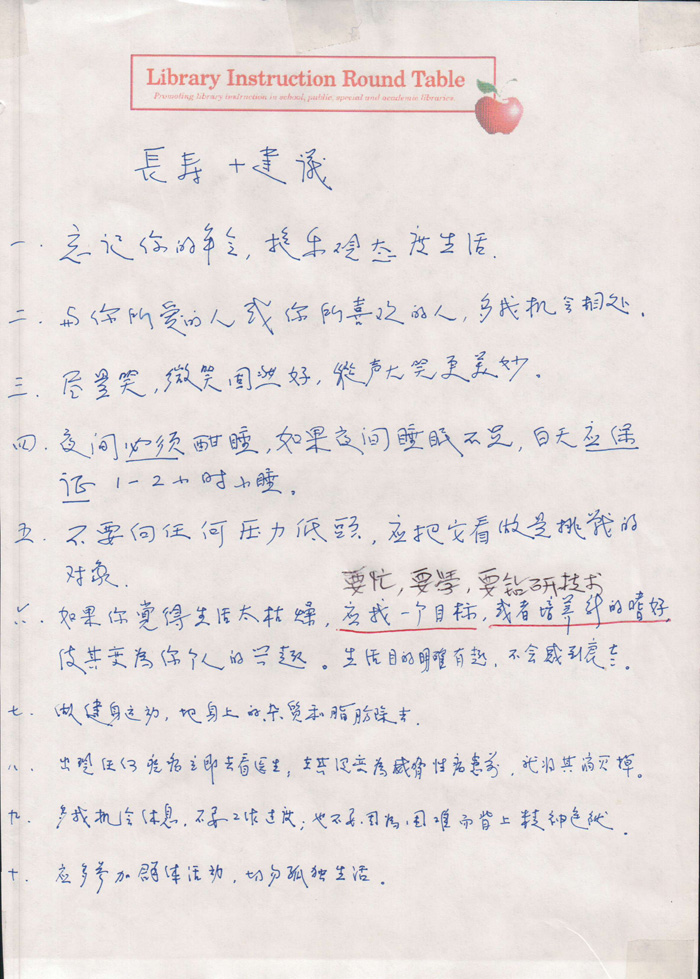 Library Instruction Round Table
Promoting library instruction in school, public, special and academic libraries.
長寿十建议
一. 忘记你的年令, 按乐观态度生活.
二. 与你所爱的人或你所喜欢的人, 多找机会相处.
三. 尽量笑, 微笑固然好, 縱声大笑更美妙.
四. 夜间必须酣睡, 如果夜间睡眠不足, 白天应保
证 1-2小时小睡.
五. 不要向任何压力低頭, 应把它看做是挑战的
对象.
要忙, 要學, 要钻研技术
六. 如果你覺得生活太枯燥, 应找一个目标, 或者培养新的嗜好
使其变為你个人的兴趣. 生活目的明確有趣, 不会感到衰老.
七. 做健身运动, 把身上的杂质和脂肪除去.
八. 出现任何疾病立即去看医生, 在其演变為威脅性病患前, 就将其消灭掉.
九. 多找机会休息, 不要工作过度; 也不要因為困难而背上精神包袱.
十. 应多参加群体活动, 切勿孤独生活.